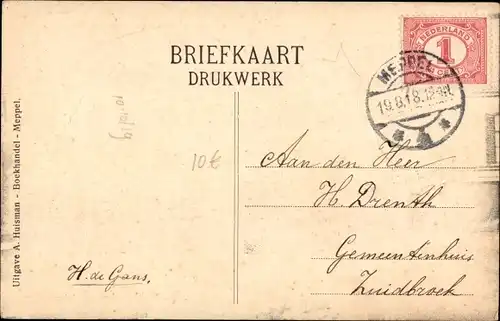 NEDERLAND
1
BRIEFKAART
DRUKWERK
MEPPEL
19.8.18.
10€
Aan den Heer
H. Drenth
Gemeentenhuis
Zuidbroek
H. de Gans.
Uitgave A. Huisman - Boekhandel - Meppel.